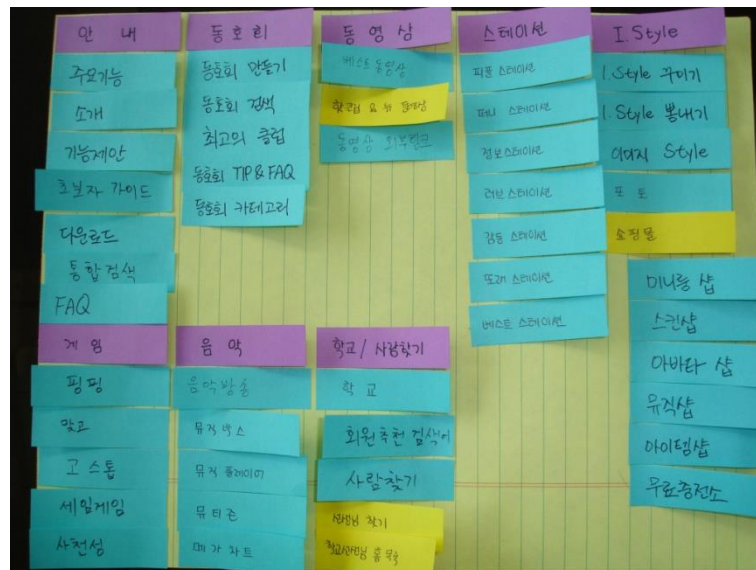 안 내
주요기능
소개
기능제안
초보자 가이드
다운로드
통합검색
FAQ
동호회
동호회 만들기
동호회 검색
최고의 클럽
동호회 TIP & FAQ
동호회 카테고리
동영상
베스트 동영상
동영상 외부링크
스테이션
피플 스테이션
퍼니 스테이션
정보스테이션
러브 스테이션
감동 스테이션
또래 스테이션
베스트 스테이션
I. Style
I. Style 꾸미기
I. Style 뽐내기
이미지 Style
포 토
쇼핑몰
미니룸 샵
스킨샵
아바타 샵
뮤직샵
아이템샵
무료충전소
게 임
핑핑
맞고
고 스톱
세임게임
사천성
음 악
음악방송
뮤직 박스
뮤직 플레이어
뮤티즌
메가 차트
학교/ 사람찾기
학 교
회원추천 검색어
사람찾기
선생님 찾기